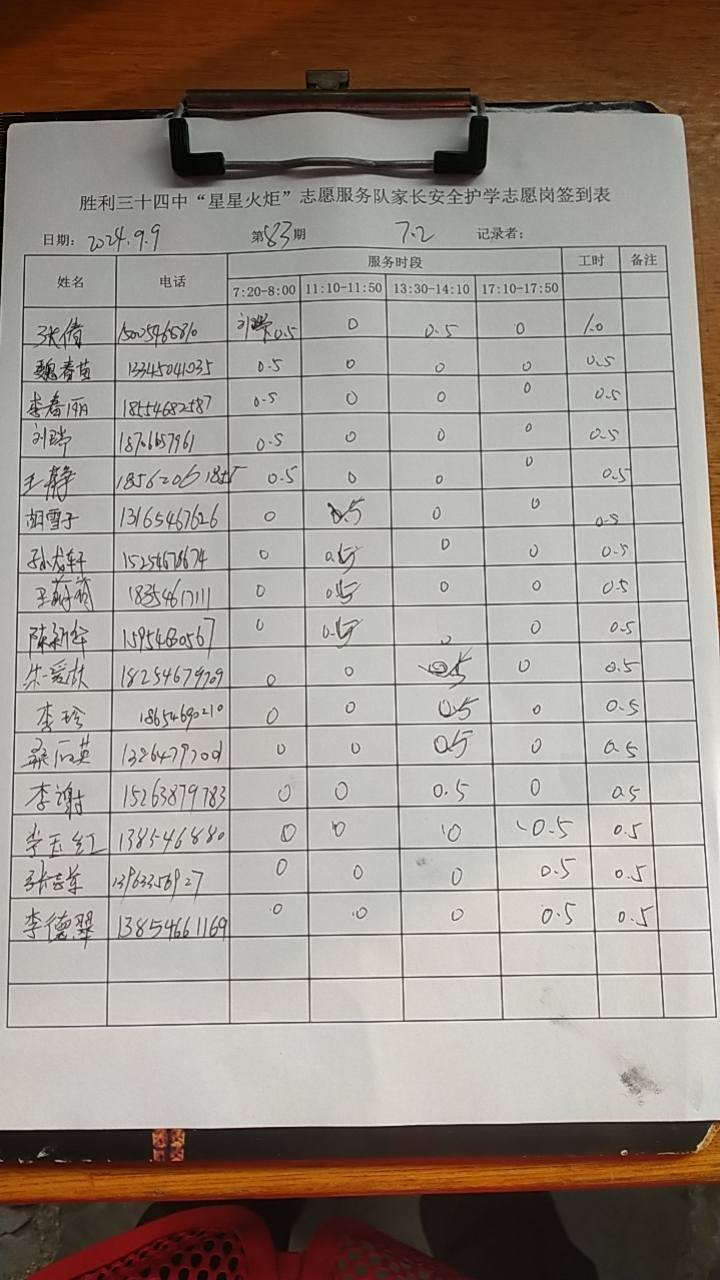 胜利三十四中“星星火炬”志愿服务队家长安全护学志愿岗签到表
日期: 2024.9.9 第83期 7.2 记录者:
姓名 电话 服务时段 工时 备注
7:20-8:00 11:10-11:50 13:30-14:10 17:10-17:50
张倩 15005465810 0.5 0 0.5 0 1.0
魏春苗 13345041035 0.5 0 0 0 0.5
李春丽 18554682587 0.5 0 0 0 0.5
刘瑞 1876657961 0.5 0 0 0 0.5
王静 18562061855 0.5 0 0 0 0.5
胡雪子 13165467626 0 0.5 0 0 0.5
孙龙轩 15254678674 0 0.5 0 0 0.5
王 18354617111 0 0.5 0 0 0.5
陈新华 15954630567 0 0.5 0 0.5
朱爱欣 18254679709 0 0 0.5 0 0.5
李珍 18654690210 0 0 0.5 0 0.5
0 0 0.5 0 0.5
李谢 15263879783 0 0 0.5 0 0.5
李玉红 138546880 0 0 0 0.5 0.5
张 13963356927 0 0 0 0.5 0.5
李德翠 13854661169 0 0 0 0.5 0.5